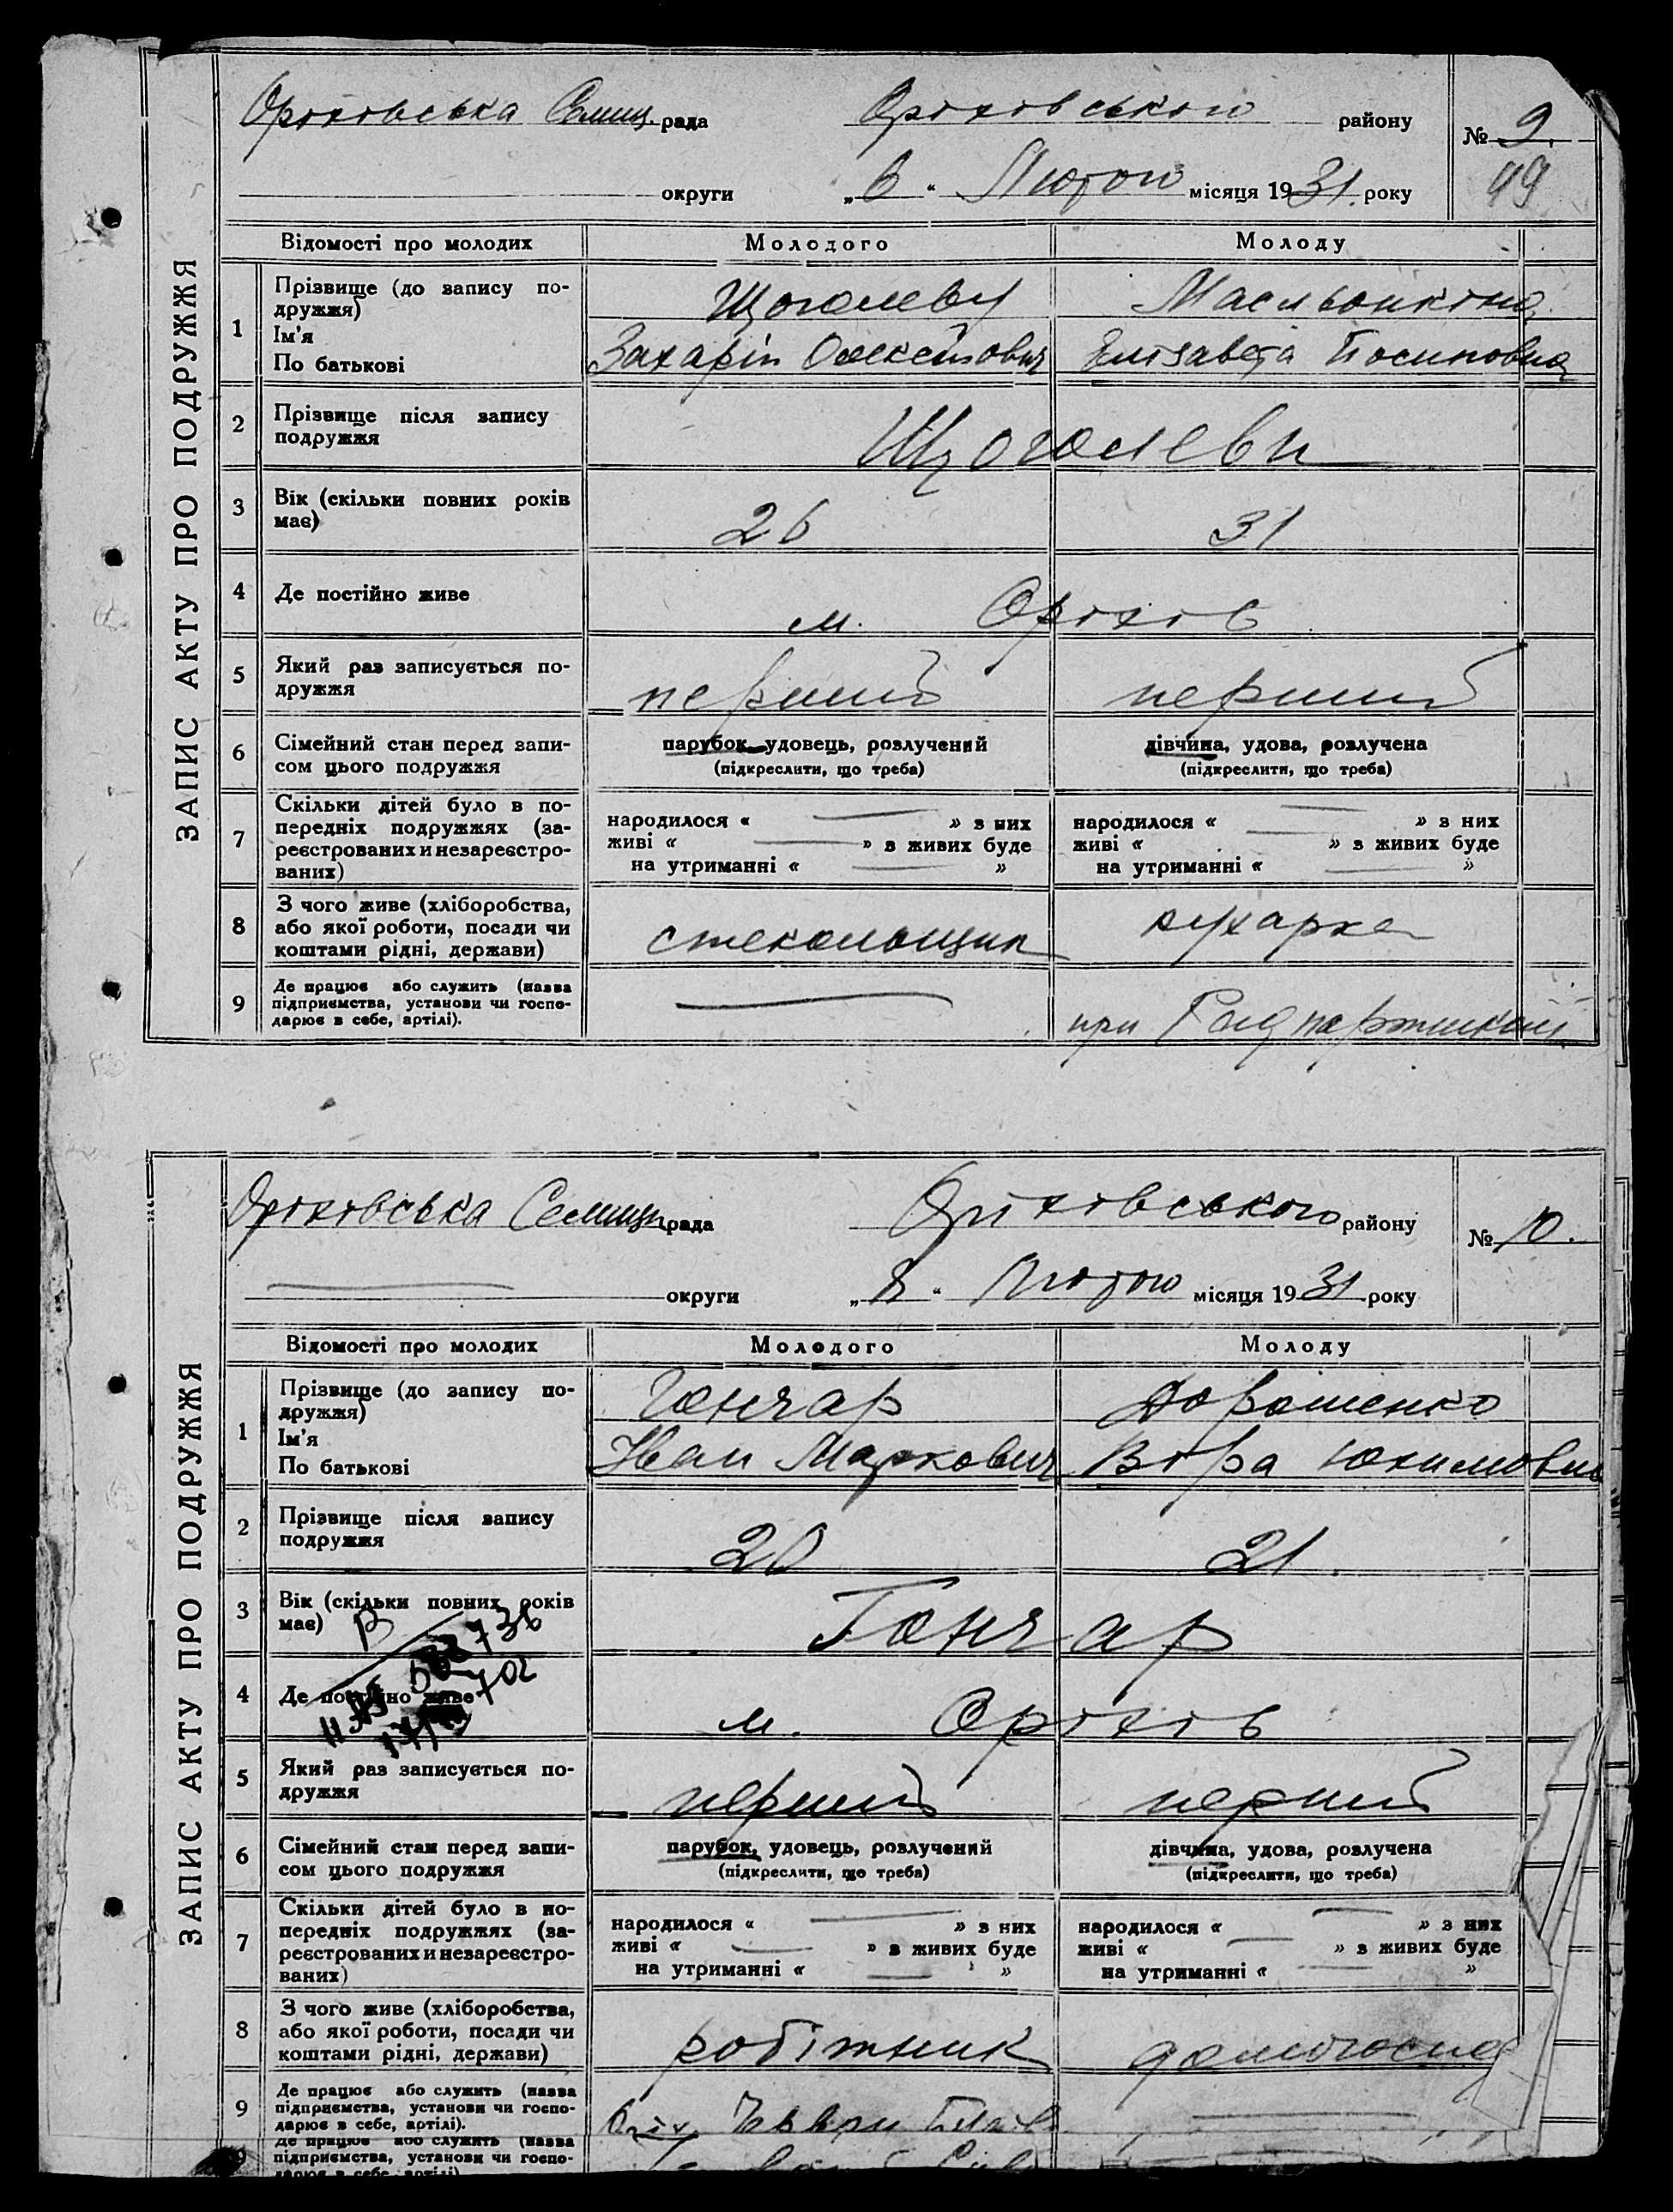 ЗАПИС АКТУ ПРО ПОДРУЖЖЯ
Оріхівська Селищ. рада Оріхівського району № 9.
округи „6" Лютого місяця 1931. року 49
Відомості про молодих Молодого Молоду
1 Прізвище (до запису по-
дружжя) Щоголеву Масльонкіна
Ім'я
По батькові Захарій Олексійович Єлізавета Йосиповна
2 Прізвище після запису
подружжя Щоголеви
3 Вік (скільки повних років
має) 26 31
4 Де постійно живе м. Оріхів
5 Який раз записується по-
дружжя перший перший
6 Сімейний стан перед запи-
сом цього подружжя
парубок, удовець, розлучений дівчина, удова, розлучена
(підкреслити, що треба) (підкреслити, що треба)
7 Скільки дітей було в по-
передніх подружжях (за-
реєстрованих и незареєстро-
ваних)
народилося « » з них народилося « » з них
живі « » в живих буде живі « » в живих буде
на утриманні « » на утриманні « »
8 З чого живе (хліборобства,
або якої роботи, посади чи
коштами рідні, держави) стекольщик кухарка
9 Де працює або служить (назва
підприємства, установи чи госпо-
дарює в себе, артілі). при
ЗАПИС АКТУ ПРО ПОДРУЖЖЯ
Оріхівська Селищн рада Оріхівського району № 10.
округи „8" Лютого місяця 1931. року
Відомості про молодих Молодого Молоду
1 Прізвище (до запису по-
дружжя) Гончар Дорошенко
Ім'я
По батькові Иван Маркович Віра Юхимовна
2 Прізвище після запису
подружжя 20 21
3 Вік (скільки повних років
має) Гончар
4 Де постійно живе м. Оріхів
5 Який раз записується по-
дружжя перший перший
6 Сімейний стан перед запи-
сом цього подружжя
парубок, удовець, розлучений дівчина, удова, розлучена
(підкреслити, що треба) (підкреслити, що треба)
7 Скільки дітей було в по-
передніх подружжях (за-
реєстрованих и незареєстро-
ваних)
народилося « » з них народилося « » з них
живі « » в живих буде живі « » в живих буде
на утриманні « » на утриманні « »
8 З чого живе (хліборобства,
або якої роботи, посади чи
коштами рідні, держави) робітник домогоспод
9 Де працює або служить (назва
підприємства, установи чи госпо-
дарює в себе, артілі).
Де працює або служить (назва
9 підприємства, установи чи госпо-
дарює в себе, артілі)